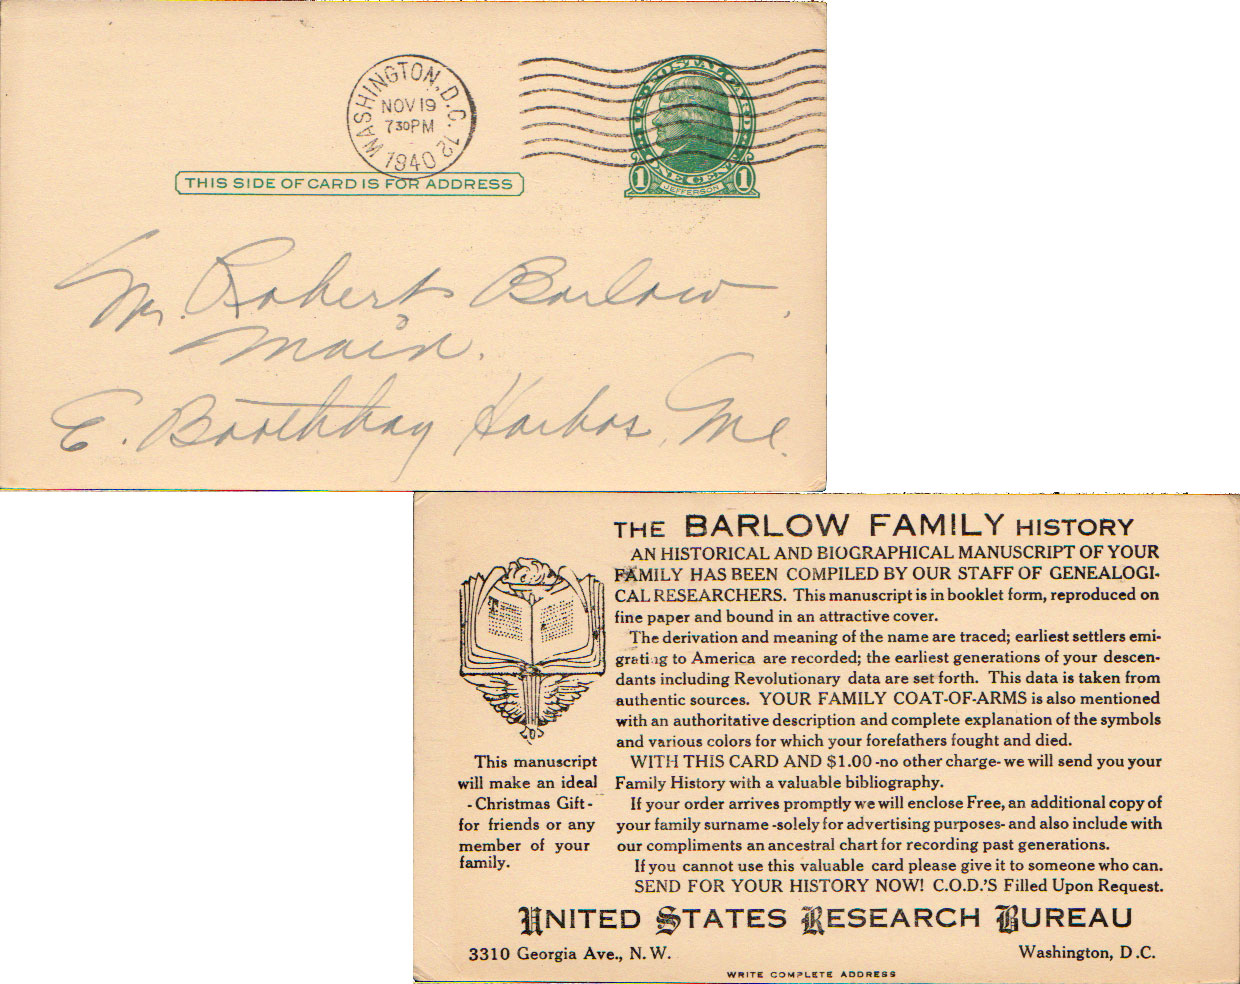 WASHINGTON, D.C. 12
NOV 19
7 30 PM
1940
U.S. POSTAL CARD
ONE CENT
1 JEFFERSON 1
THIS SIDE OF CARD IS FOR ADDRESS
Mr. Robert Barlow,
Main.
E. Boothbay Harbor, Me.
THE BARLOW FAMILY HISTORY
AN HISTORICAL AND BIOGRAPHICAL MANUSCRIPT OF YOUR
FAMILY HAS BEEN COMPILED BY OUR STAFF OF GENEALOGI-
CAL RESEARCHERS. This manuscript is in booklet form, reproduced on
fine paper and bound in an attractive cover.
The derivation and meaning of the name are traced; earliest settlers emi-
grating to America are recorded; the earliest generations of your descen-
dants including Revolutionary data are set forth. This data is taken from
authentic sources. YOUR FAMILY COAT-OF-ARMS is also mentioned
with an authoritative description and complete explanation of the symbols
and various colors for which your forefathers fought and died.
WITH THIS CARD AND $1.00 -no other charge- we will send you your
Family History with a valuable bibliography.
If your order arrives promptly we will enclose Free, an additional copy of
your family surname -solely for advertising purposes- and also include with
our compliments an ancestral chart for recording past generations.
If you cannot use this valuable card please give it to someone who can.
SEND FOR YOUR HISTORY NOW! C.O.D.'S Filled Upon Request.
This manuscript
will make an ideal
- Christmas Gift -
for friends or any
member of your
family.
UNITED STATES RESEARCH BUREAU
3310 Georgia Ave., N. W.
Washington, D.C.
WRITE COMPLETE ADDRESS